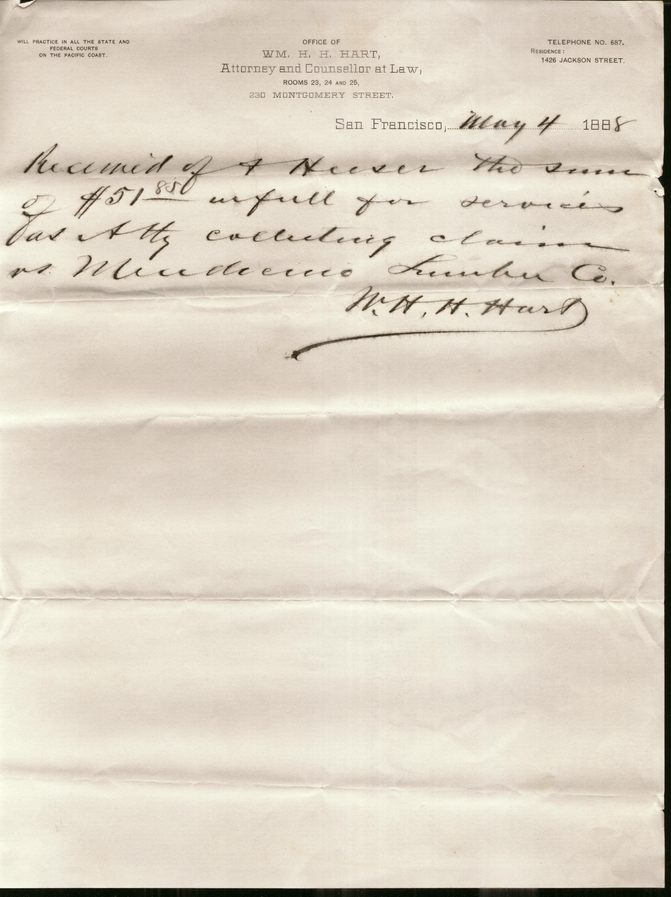 WILL PRACTICE IN ALL THE STATE AND
FEDERAL COURTS
ON THE PACIFIC COAST.
OFFICE OF
WM. H. H. HART,
Attorney and Counsellor at Law,
ROOMS 23, 24 AND 25,
230 MONTGOMERY STREET.
TELEPHONE NO. 687.
RESIDENCE:
1426 JACKSON STREET.
San Francisco, May 4 1888
Received of A Heeser the sum
of $51 85 in full for services
as Atty collecting claim
vs Mendocino Lumber Co.
W. H. H. Hart